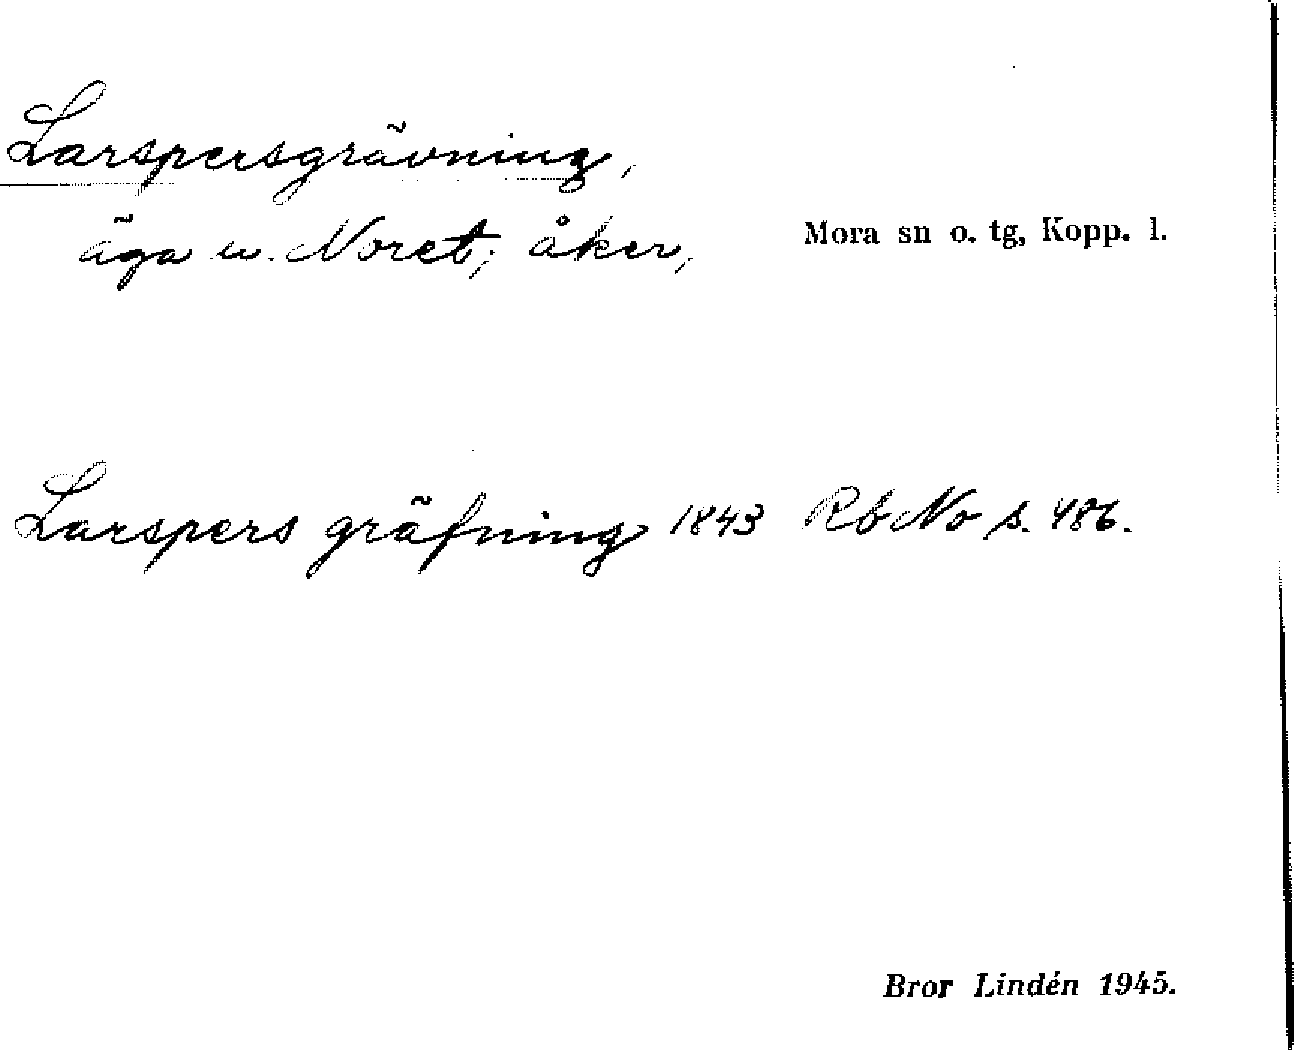 Larspersgrävning,
äga u. Noret; åker,
Mora sn o. tg, Kopp. l.
Larspers gräfning 1843 Rb No s. 486.
Bror Lindén 1945.